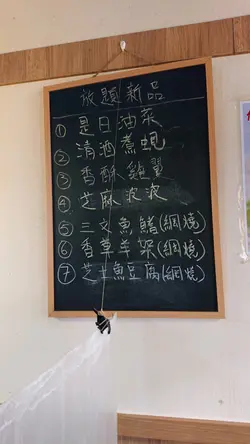 放題新品
① 是日油菜
② 清酒煮蜆
③ 香酥雞翼
④ 芝麻波波
⑤ 三文魚鰭(網燒)
⑥ 香草羊架(網燒)
⑦ 芝士魚豆腐(網燒)